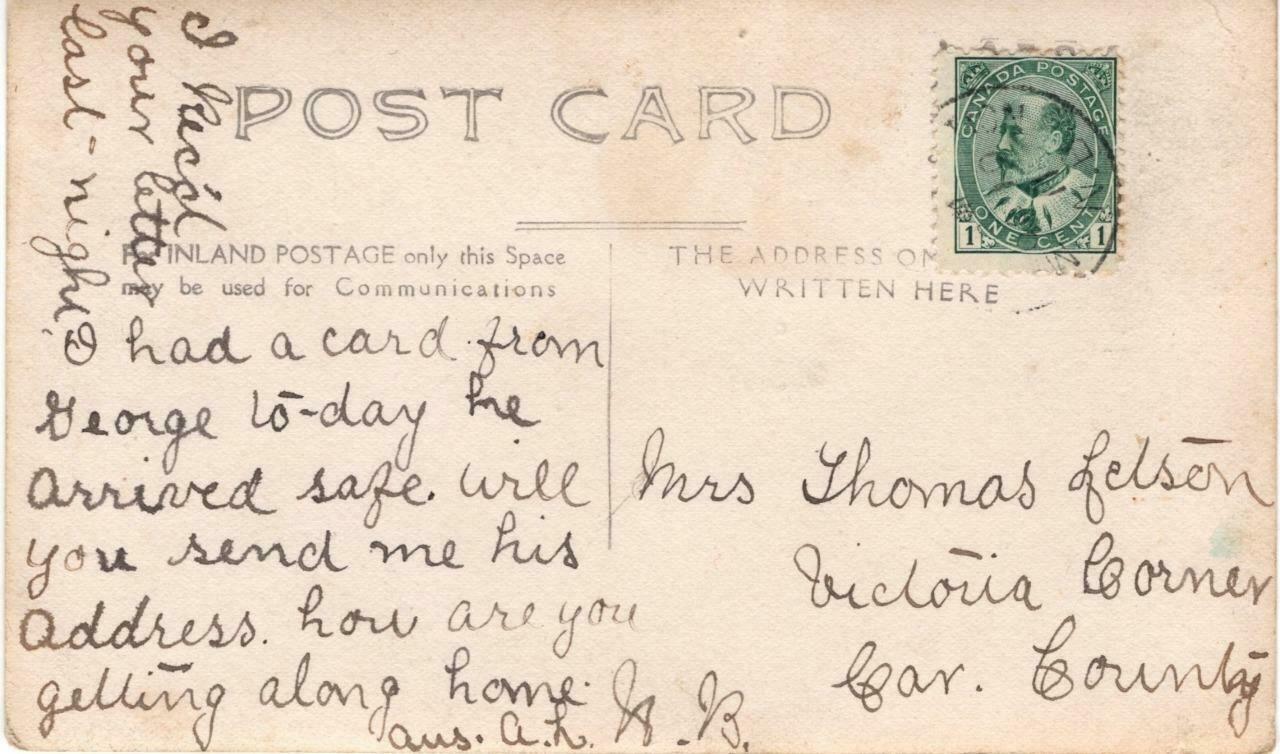 POST CARD
CANADA POSTAGE
ONE CENT
1 1
INLAND POSTAGE only this Space
may be used for Communications
THE ADDRESS
WRITTEN HERE
I Rec'd
your letter
last-night
I had a card from
George to-day he
Arrived safe. will
you send me his
Address. how are you
getting along home.
ans. A.L.
Mrs Thomas
Victoria Corner
Car. County
N.B.